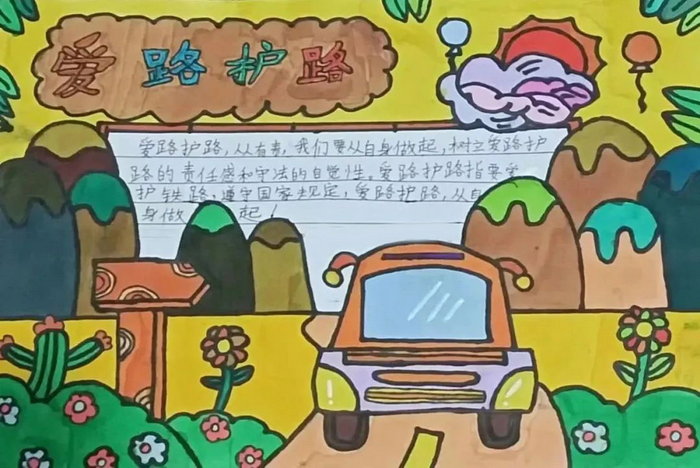 爱路护路
爱路护路,从有责,我们要从自身做起,树立爱路护
路的责任感和守法的自觉性。爱路护路指要爱
护铁路,遵守国家规定,爱路护路,从自
身做 起!